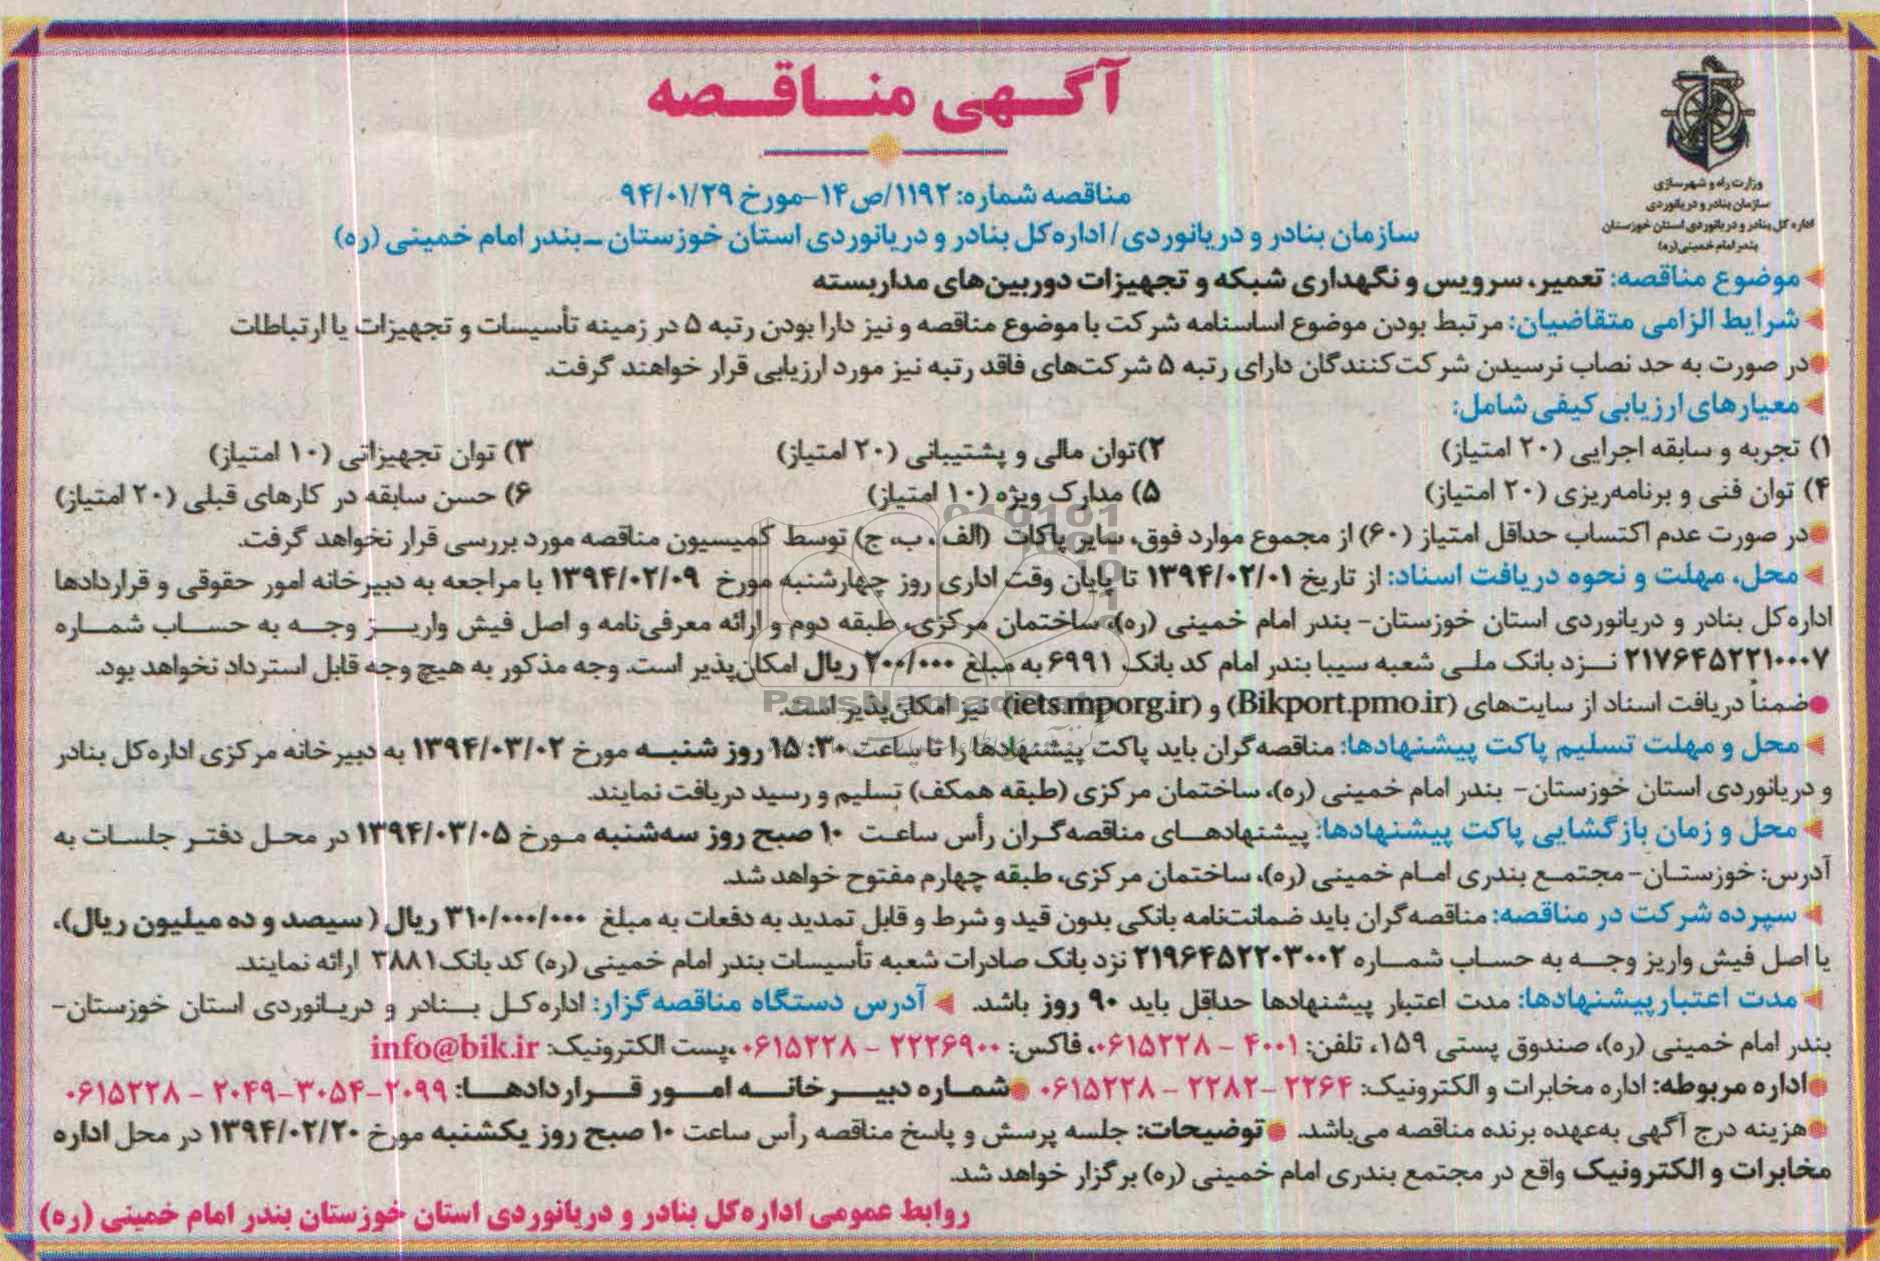 آگهی مناقصه
وزارت راه و شهرسازی
سازمان بنادر و دریانوردی
اداره کل بنادر و دریانوردی استان خوزستان
بندر امام خمینی (ره)
مناقصه شماره: ۱۱۹۲/ص۱۴-مورخ ۹۴/۰۱/۲۹
سازمان بنادر و دریانوردی/ اداره‌کل بنادر و دریانوردی استان خوزستان ـ بندر امام خمینی (ره)
موضوع مناقصه: تعمیر، سرویس و نگهداری شبکه و تجهیزات دوربین‌های مداربسته
شرایط الزامی متقاضیان: مرتبط بودن موضوع اساسنامه شرکت با موضوع مناقصه و نیز دارا بودن رتبه ۵ در زمینه تأسیسات و تجهیزات یا ارتباطات
●در صورت به حد نصاب نرسیدن شرکت‌کنندگان دارای رتبه ۵ شرکت‌های فاقد رتبه نیز مورد ارزیابی قرار خواهند گرفت.
معیارهای ارزیابی کیفی شامل:
۱) تجربه و سابقه اجرایی (۲۰ امتیاز) ۲)توان مالی و پشتیبانی (۲۰ امتیاز) ۳) توان تجهیزاتی (۱۰ امتیاز)
۴) توان فنی و برنامه‌ریزی (۲۰ امتیاز) ۵) مدارک ویژه (۱۰ امتیاز) ۶) حسن سابقه در کارهای قبلی (۲۰ امتیاز)
●در صورت عدم اکتساب حداقل امتیاز (۶۰) از مجموع موارد فوق، سایر پاکات (الف، ب، ج) توسط کمیسیون مناقصه مورد بررسی قرار نخواهد گرفت.
محل، مهلت و نحوه دریافت اسناد: از تاریخ ۱۳۹۴/۰۲/۰۱ تا پایان وقت اداری روز چهارشنبه مورخ ۱۳۹۴/۰۲/۰۹ با مراجعه به دبیرخانه امور حقوقی و قراردادها
اداره‌کل بنادر و دریانوردی استان خوزستان- بندر امام خمینی (ره)، ساختمان مرکزی، طبقه دوم و ارائه معرفی‌نامه و اصل فیش واریز وجه به حساب شماره
۲۱۷۶۴۵۲۲۱۰۰۰۷ نزد بانک ملی شعبه سیبا بندر امام کد بانک ۶۹۹۱ به مبلغ ۲۰۰/۰۰۰ ریال امکان‌پذیر است. وجه مذکور به هیچ وجه قابل استرداد نخواهد بود.
●ضمناً دریافت اسناد از سایت‌های (Bikport.pmo.ir) و (iets.mporg.ir) نیز امکان‌پذیر است.
ParsNamadData
محل و مهلت تسلیم پاکت پیشنهادها: مناقصه‌گران باید پاکت پیشنهادها را تا ساعت ۱۵:۳۰ روز شنبه مورخ ۱۳۹۴/۰۳/۰۲ به دبیرخانه مرکزی اداره‌کل بنادر
و دریانوردی استان خوزستان- بندر امام خمینی (ره)، ساختمان مرکزی (طبقه همکف) تسلیم و رسید دریافت نمایند.
محل و زمان بازگشایی پاکت پیشنهادها: پیشنهادهای مناقصه‌گران رأس ساعت ۱۰ صبح روز سه‌شنبه مورخ ۱۳۹۴/۰۳/۰۵ در محل دفتر جلسات به
آدرس: خوزستان- مجتمع بندری امام خمینی (ره)، ساختمان مرکزی، طبقه چهارم مفتوح خواهد شد.
سپرده شرکت در مناقصه: مناقصه‌گران باید ضمانتنامه بانکی بدون قید و شرط و قابل تمدید به دفعات به مبلغ ۳۱۰/۰۰۰/۰۰۰ ریال ( سیصد و ده میلیون ریال)،
یا اصل فیش واریز وجه به حساب شماره ۲۱۹۶۴۵۲۲۰۳۰۰۲ نزد بانک صادرات شعبه تأسیسات بندر امام خمینی (ره) کد بانک ۳۸۸۱ ارائه نمایند.
مدت اعتبار پیشنهادها: مدت اعتبار پیشنهادها حداقل باید ۹۰ روز باشد. آدرس دستگاه مناقصه‌گزار: اداره‌کل بنادر و دریانوردی استان خوزستان-
بندر امام خمینی (ره)، صندوق پستی ۱۵۹، تلفن: ۴۰۰۱ - ۰۶۱۵۲۲۸، فاکس: ۲۲۲۶۹۰۰ - ۰۶۱۵۲۲۸، پست الکترونیک: info@bik.ir
●اداره مربوطه: اداره مخابرات و الکترونیک: ۲۲۶۴ -۲۲۸۲ - ۰۶۱۵۲۲۸ ●شماره دبیرخانه امور قراردادها: ۲۰۹۹-۳۰۵۴-۲۰۴۹ - ۰۶۱۵۲۲۸
●هزینه درج آگهی به‌عهده برنده مناقصه می‌باشد. ●توضیحات: جلسه پرسش و پاسخ مناقصه رأس ساعت ۱۰ صبح روز یکشنبه مورخ ۱۳۹۴/۰۲/۲۰ در محل اداره
مخابرات و الکترونیک واقع در مجتمع بندری امام خمینی (ره) برگزار خواهد شد.
روابط عمومی اداره‌کل بنادر و دریانوردی استان خوزستان بندر امام خمینی (ره)